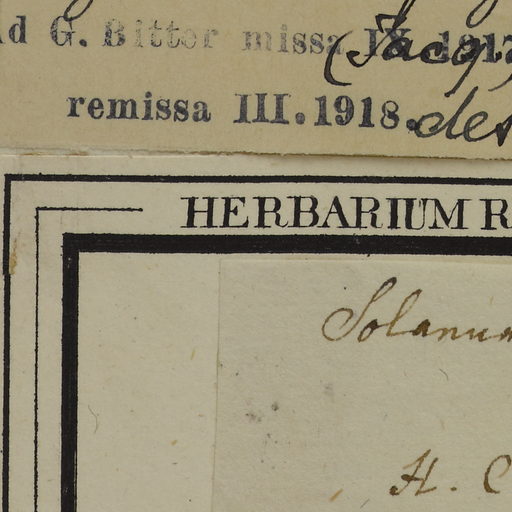 Ad G. Bitter missa IX 1917
(Jacq,
remissa III. 1918. det
HERBARIUM R
Solanum
H. C